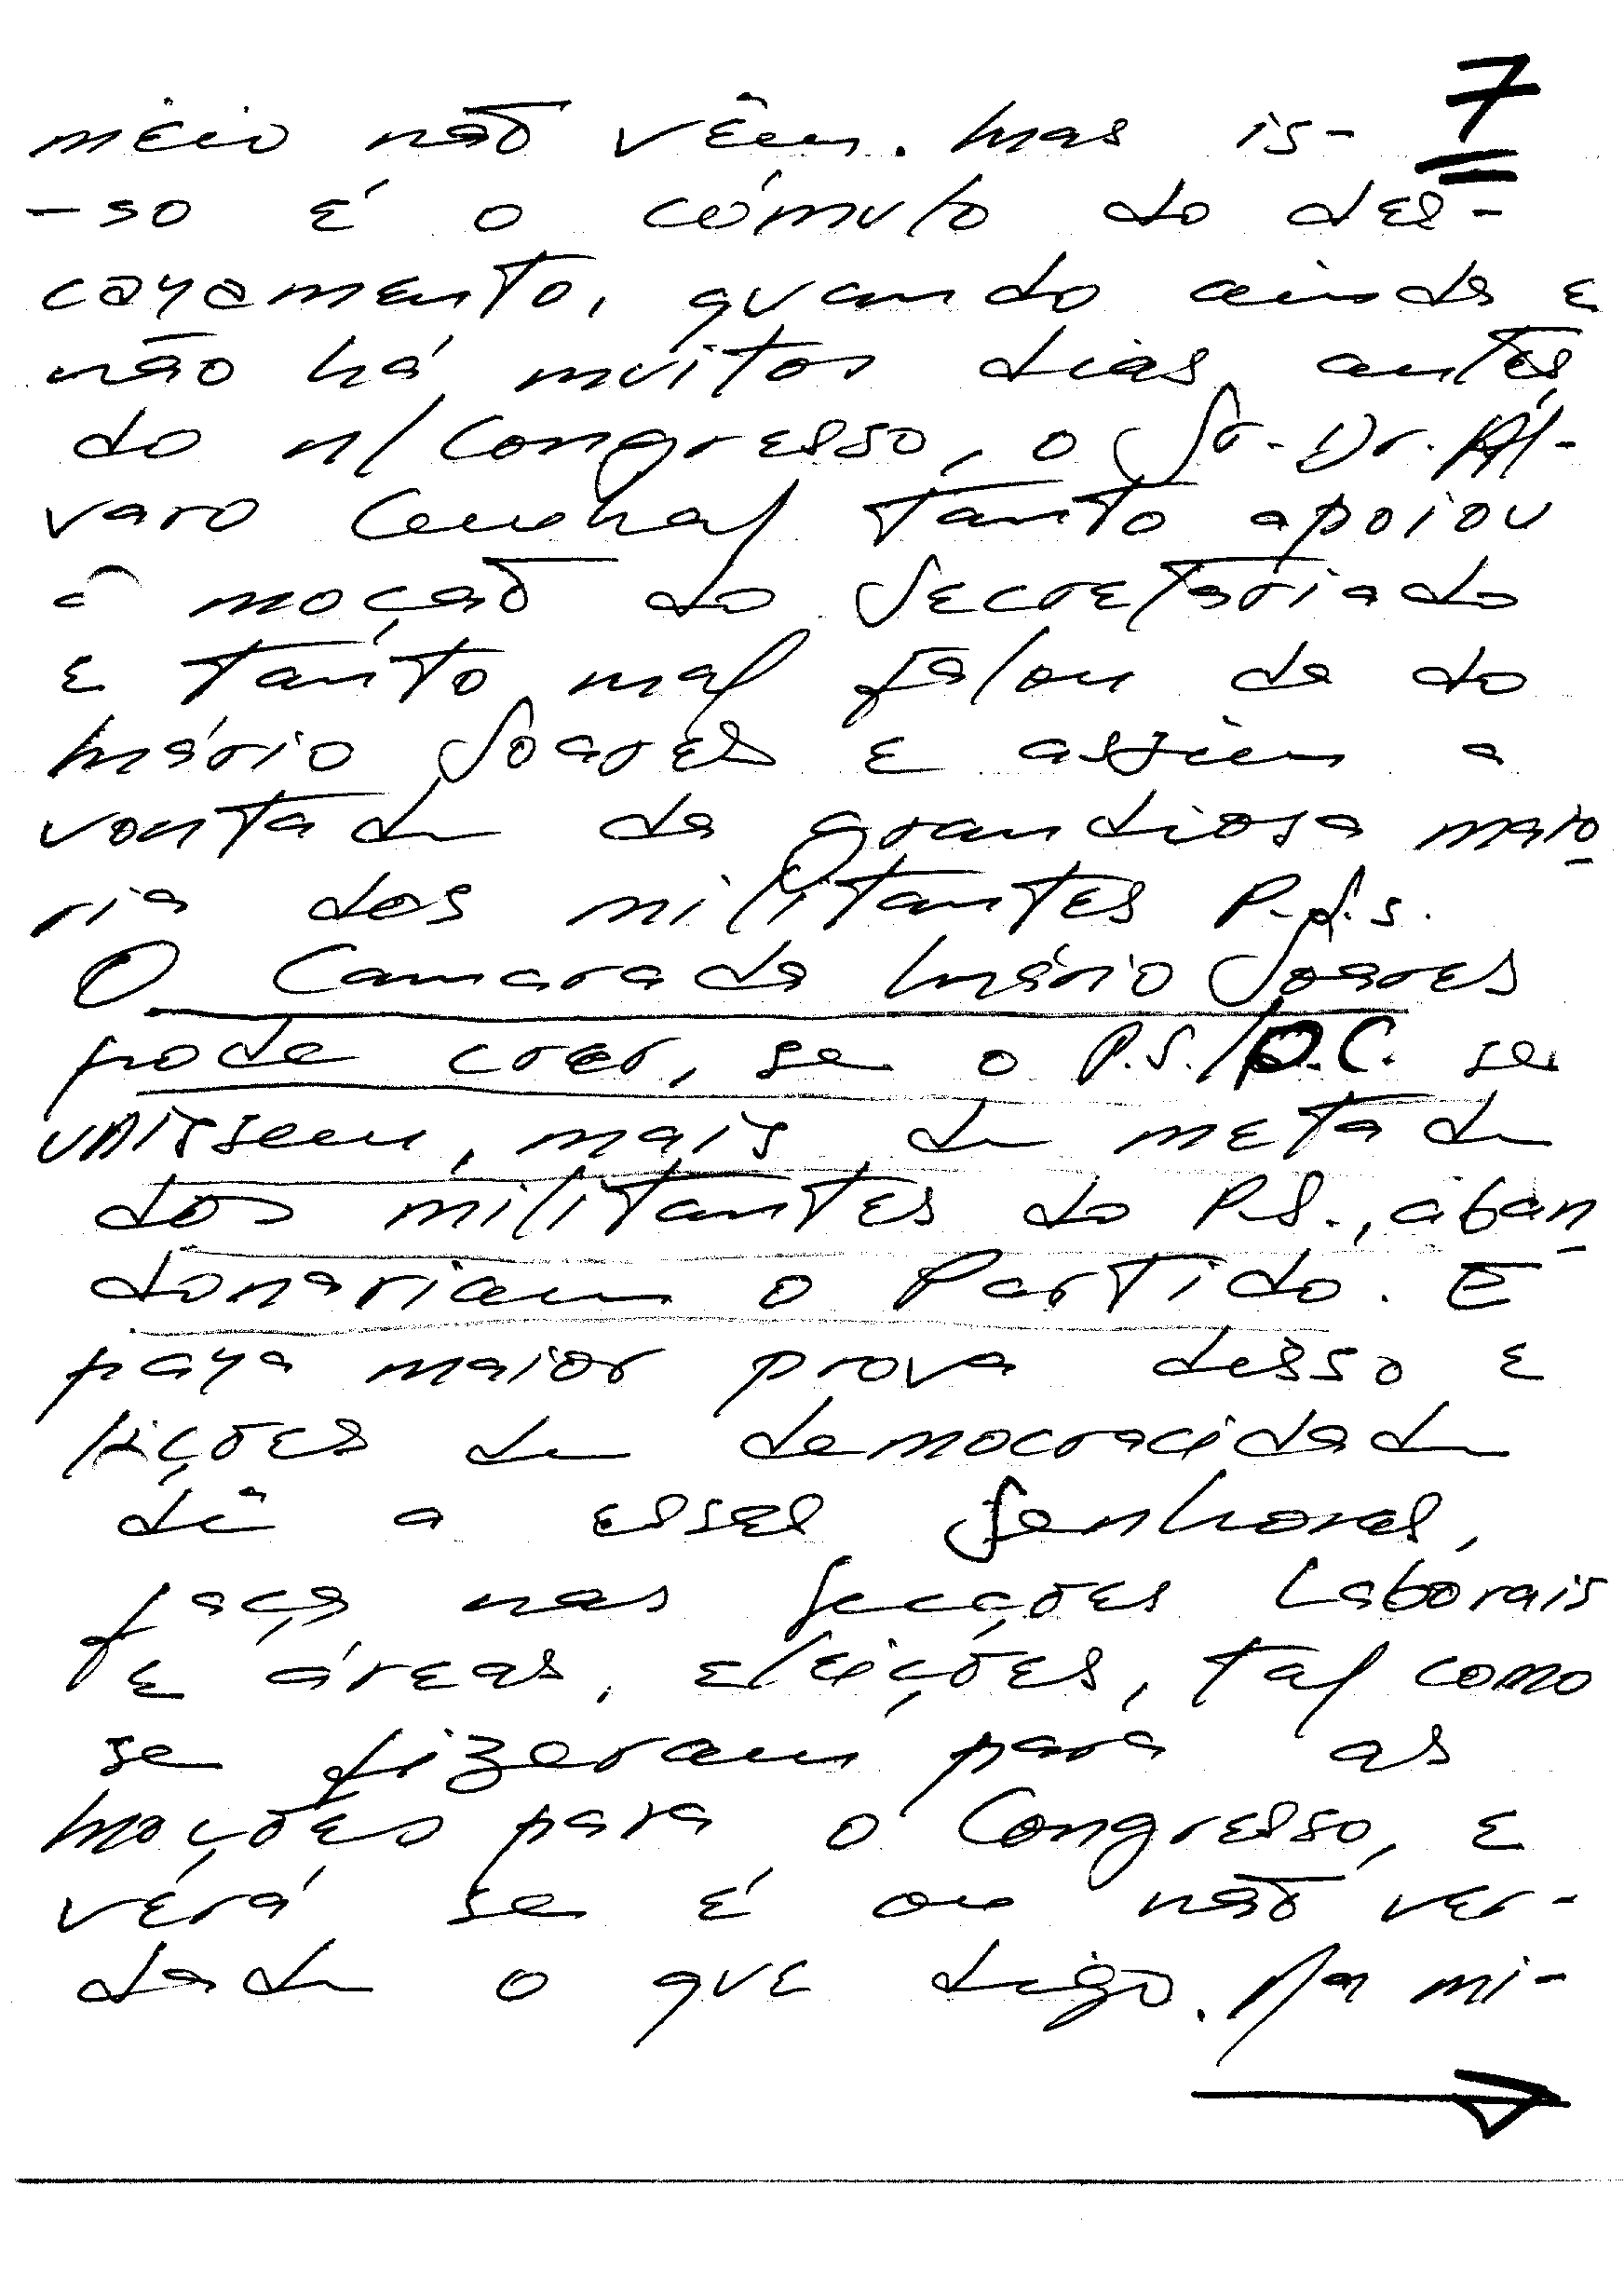 7
meio não vêm. Mas is-
-so é o cúmulo do des-
caramento, quando ainda e
não há muitos dias antes
do n/Congresso, o Sr. Dr. Ál-
varo Cunhal tanto apoiou
a moção do Secretariado
e tanto mal falou da do
Mário Soares e assim a
vontade da grandiosa maio
ria dos militantes P.S.s.
O Camarada Mário Soares
pode crer, se o P.S./P.C. se
unissem, mais de metade
dos militantes do P.S., aban
donariam o Partido. E
para maior prova disso e
lições de democracidade
dê a esses Senhores,
faça nas Secções Laborais
e áreas, eleições, tal como
se fizeram para as
Moções para o Congresso, e
verá se é ou não ver-
dade o que digo. Na mi-